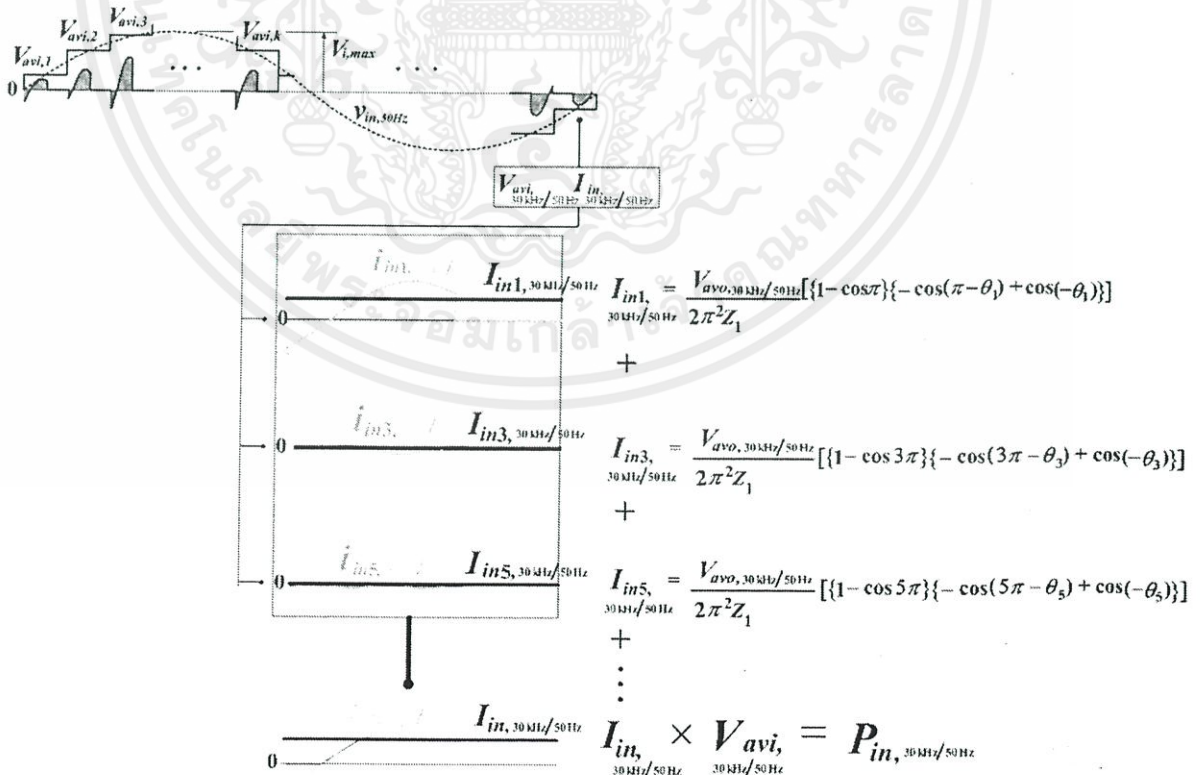 V_{avi,1} V_{avi,2} V_{avi,3} ... V_{avi,k} V_{i,max} ...
0
v_{in,50Hz}
V_{avi, 30kHz/50Hz} I_{in, 30kHz/50Hz}
i_{in1,} I_{in1, 30kHz/50Hz} I_{in1, 30kHz/50Hz} = \frac{V_{avo,30kHz/50Hz}}{2π²Z_1}[{1-cosπ}{-cos(π-θ_1)+cos(-θ_1)}]
0
+
i_{in3,} I_{in3, 30kHz/50Hz} I_{in3, 30kHz/50Hz} = \frac{V_{avo, 30kHz/50Hz}}{2π²Z_1}[{1-cos 3π}{-cos(3π-θ_3)+cos(-θ_3)}]
0
+
i_{in5,} I_{in5, 30kHz/50Hz} I_{in5, 30kHz/50Hz} = \frac{V_{avo, 30kHz/50Hz}}{2π²Z_1}[{1-cos 5π}{-cos(5π-θ_5)+cos(-θ_5)}]
0
+
⋮
I_{in, 30kHz/50Hz} I_{in, 30kHz/50Hz} × V_{avi, 30kHz/50Hz} = P_{in, 30kHz/50Hz}
0